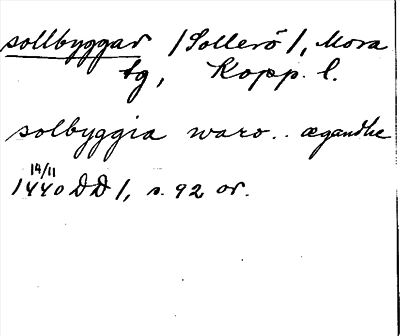 sollbyggar /Sollerö/, Mora
tg, Kopp. l.
solbyggia waro.. ægandhe
14/11
1440 DD /, s. 92 or.